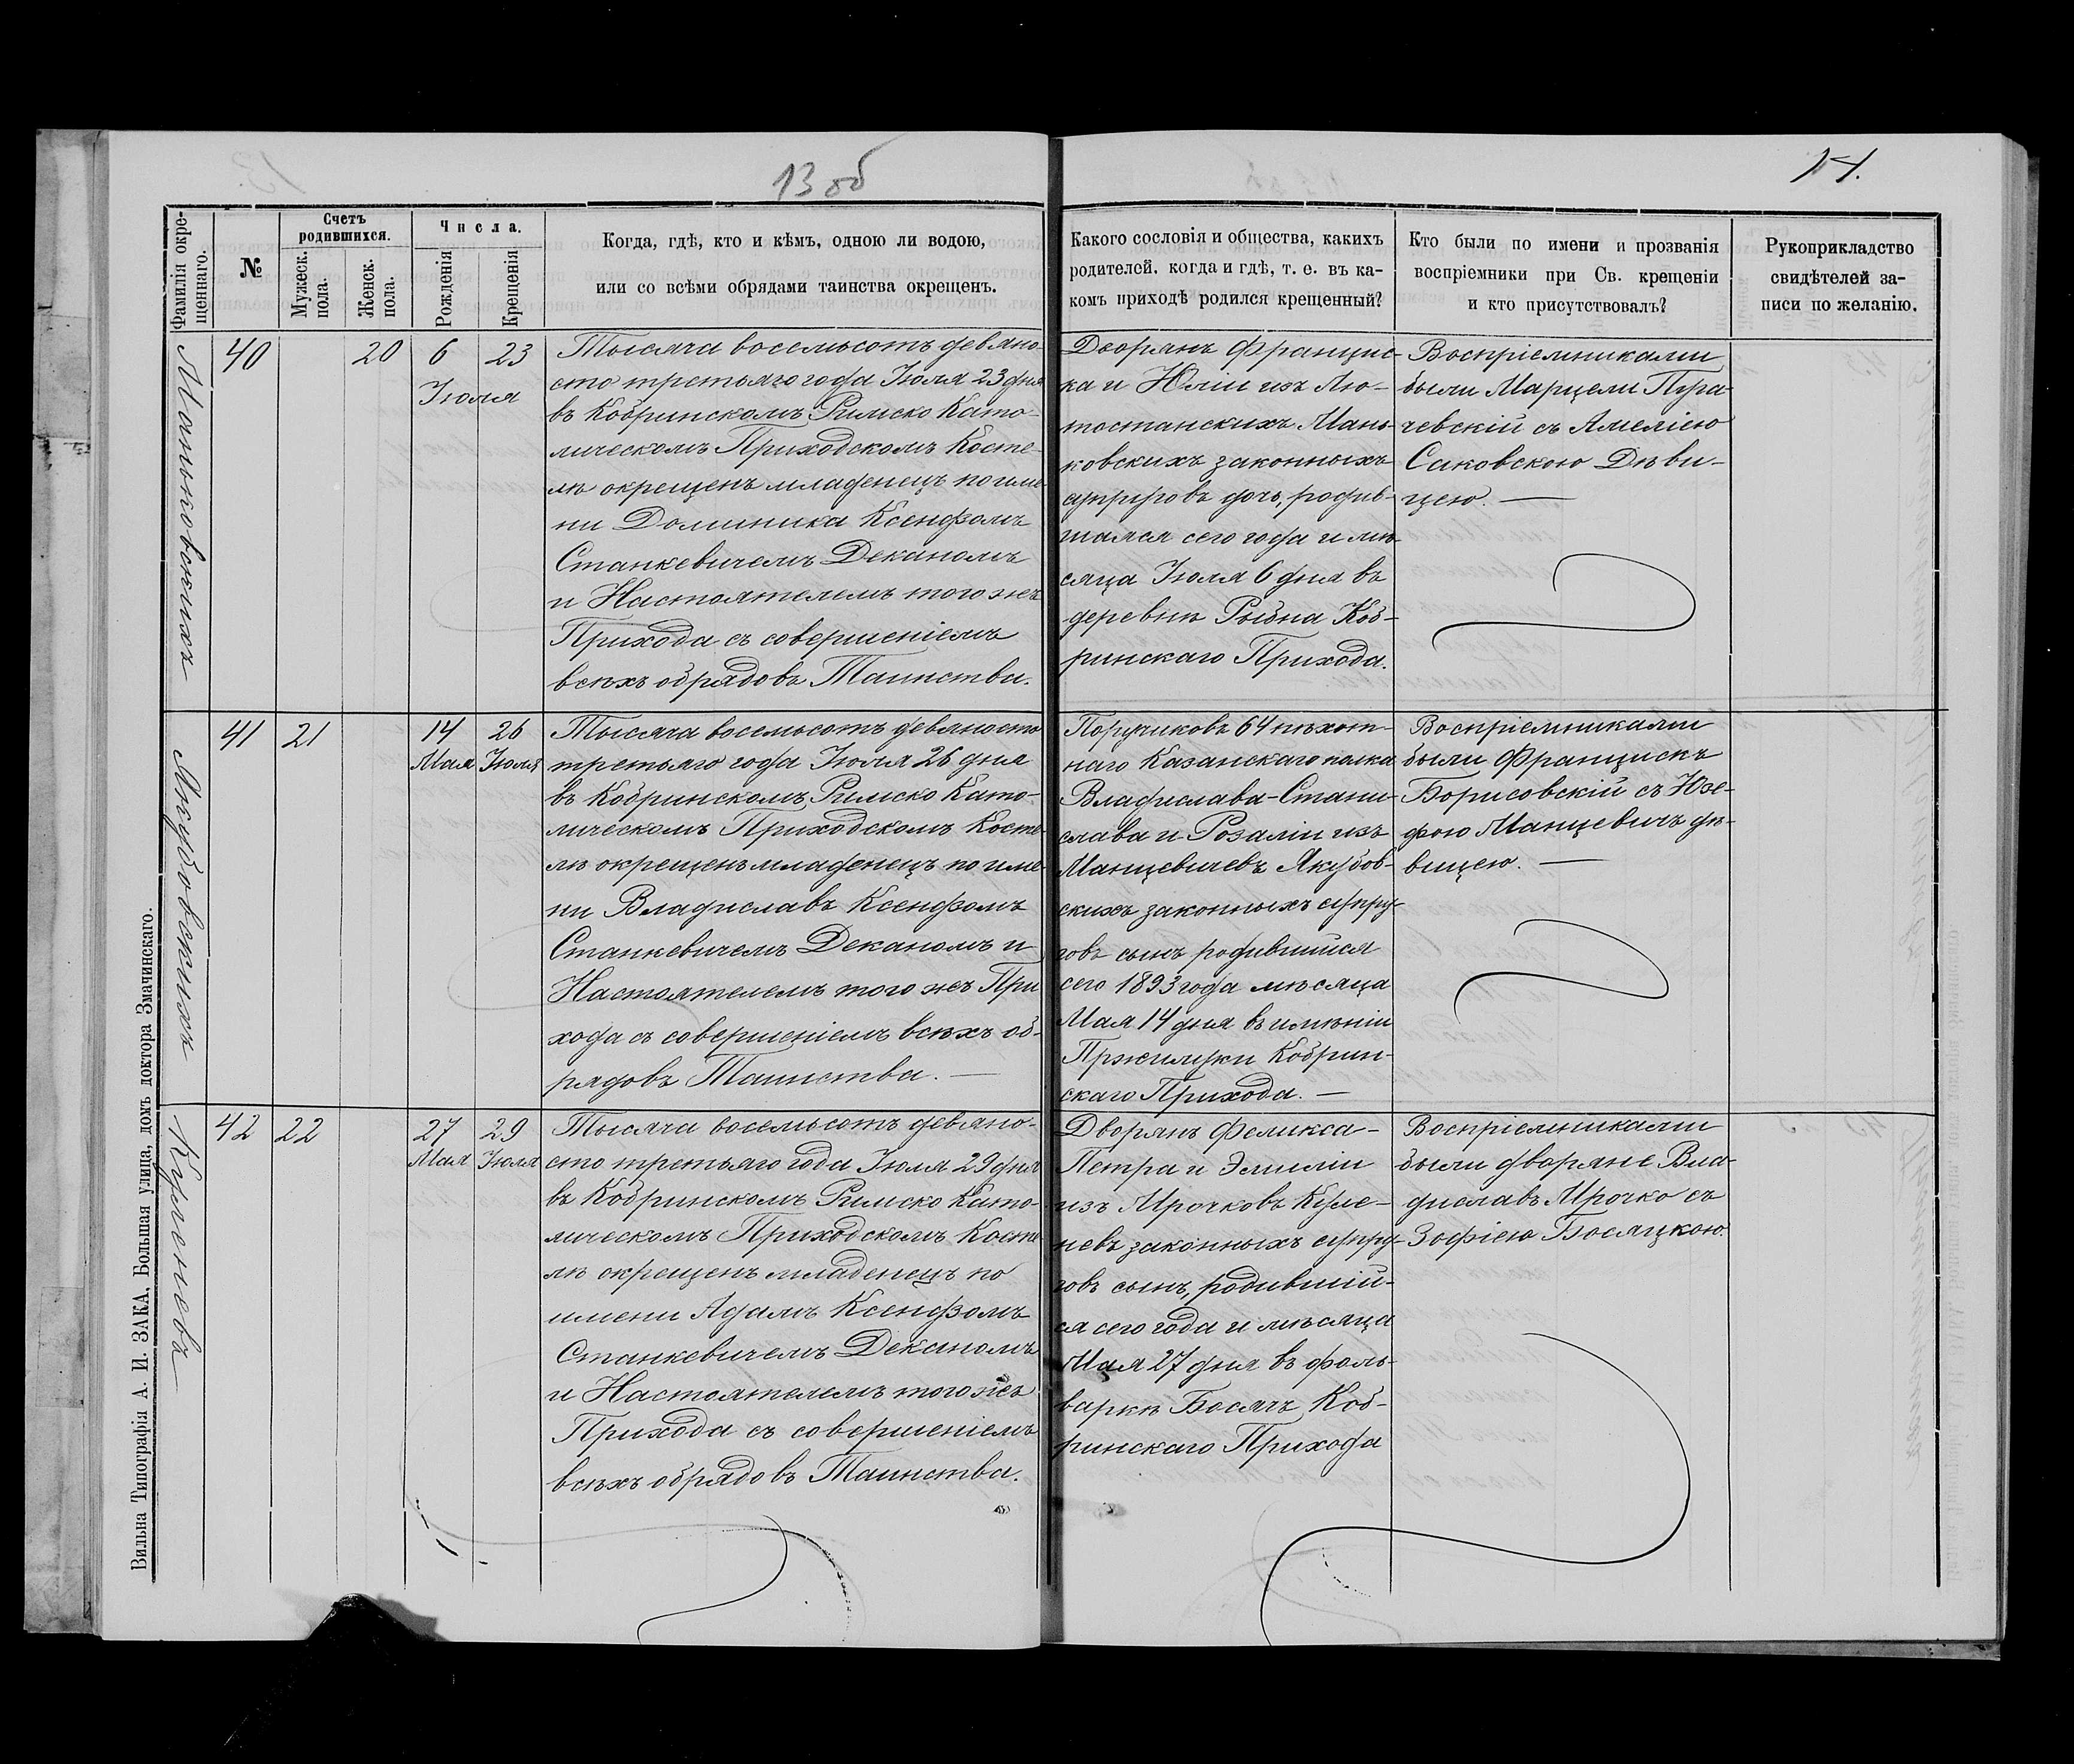 13 об
14.
Фамилія окре-
щеннаго.
№
Счетъ
родившихся.
Мужеск.
пола.
Женск.
пола.
Числа.
Рожденія
Крещенія
Когда, гдѣ, кто и кѣмъ, одною ли водою,
или со всѣми обрядами таинства окрещенъ.
Какого сословія и общества, какихъ
родителей. когда и гдѣ, т. е. въ ка-
комъ приходѣ родился крещенный?
Кто были по имени и прозванія
воспріемники при Св. крещеніи
и кто присутствовалъ?
Рукоприкладство
свидѣтелей за-
писи по желанію.
Маньковскихъ
40
20
6
23
Іюля
Тысяча восемьсотъ девяно-
сто третьяго года Іюля 23 дня
въ Кобринскомъ Римско Като-
лическомъ Приходскомъ Косте-
лѣ окрещенъ младенецъ по име-
ни Доминика Ксендзомъ
Станкевичемъ Деканомъ
и Настоятелемъ того жъ
Прихода съ совершеніемъ
всѣхъ обрядовъ Таинства.
Дворянъ Францис-
ка и Юліи изъ Лю-
тостанскихъ Мань-
ковскихъ законныхъ
супруговъ дочь, родив-
шаяся сего года и мѣ-
сяца Іюля 6 дня въ
деревнѣ Рыбна Коб-
ринскаго Прихода.
Воспріемниками
были Марцели
съ Амеліею
Саковскою Дѣви-
цею. —
Якубовскихъ
41
21
14
26
Мая
Іюля
Тысяча восемьсотъ девяносто
третьяго года Іюля 26 дня
въ Кобринскомъ Римско Като-
лическомъ Приходскомъ Косте-
лѣ окрещенъ младенецъ по име-
ни Владиславъ Ксендзомъ
Станкевичемъ Деканомъ и
Настоятелемъ того жъ При
хода съ совершеніемъ всѣхъ об-
рядовъ Таинства. —
Поручиковъ 64 пѣхот-
наго Казанскаго полка
Владислава-Стани-
слава и Розаліи изъ
Манцевичевъ Якубов-
скихъ законныхъ супру-
говъ сынъ родившійся
сего 1893 года мѣсяца
Мая 14 дня въ имѣніи
Пржилуки Кобрин-
скаго Прихода. —
Воспріемниками
были Францискъ
Борисовскій съ Юзе-
фою Манцевичъ дѣ-
вицею. —
42
22
27
29
Мая
Іюля
Тысяча восемьсотъ девяно-
сто третьяго года Іюля 29 дня
въ Кобринскомъ Римско Като-
лическомъ Приходскомъ Косте
лѣ окрещенъ младенецъ по
имени Адамъ Ксендзомъ
Станкевичемъ Деканомъ
и Настоятелемъ того жъ
Прихода съ совершеніемъ
всѣхъ обрядовъ Таинства.
Дворянъ Феликса-
Петра и Эмиліи
изъ Мрочковъ Куле-
невъ законныхъ супру-
говъ сынъ, родившій-
ся сего года и мѣсяца
Мая 27 дня въ фоль-
варкѣ Босячъ Коб-
ринскаго Прихода
Воспріемниками
были дворяне Вла-
диславъ Мрочко съ
Зофіею Босяцкою.
Вильна Типографія А. И. ЗАКА, Большая улица, домъ доктора Змачинскаго.